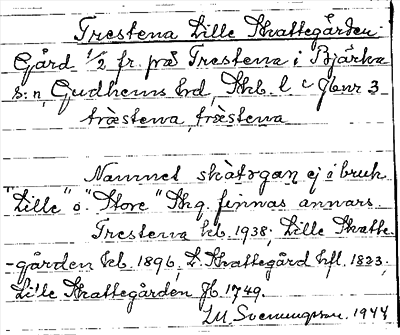 Trestena Lille Skattegården
Gård 1/2 fr. på Trestena i Bjärka
s:n, Gudhems hrd, Skb. l. c Jbnr 3
träs̀tena, träs̀tena
Namnet skàtơgan ej i bruk
"Lille" o "Store" Skg. finnas annars.
Trestena kb. 1938; Lille Skatte-
-gården kb. 1896, L. Skattegård hfl. 1823,
Lille Skattegården Jb 1749.
M Svenungsson. 1944